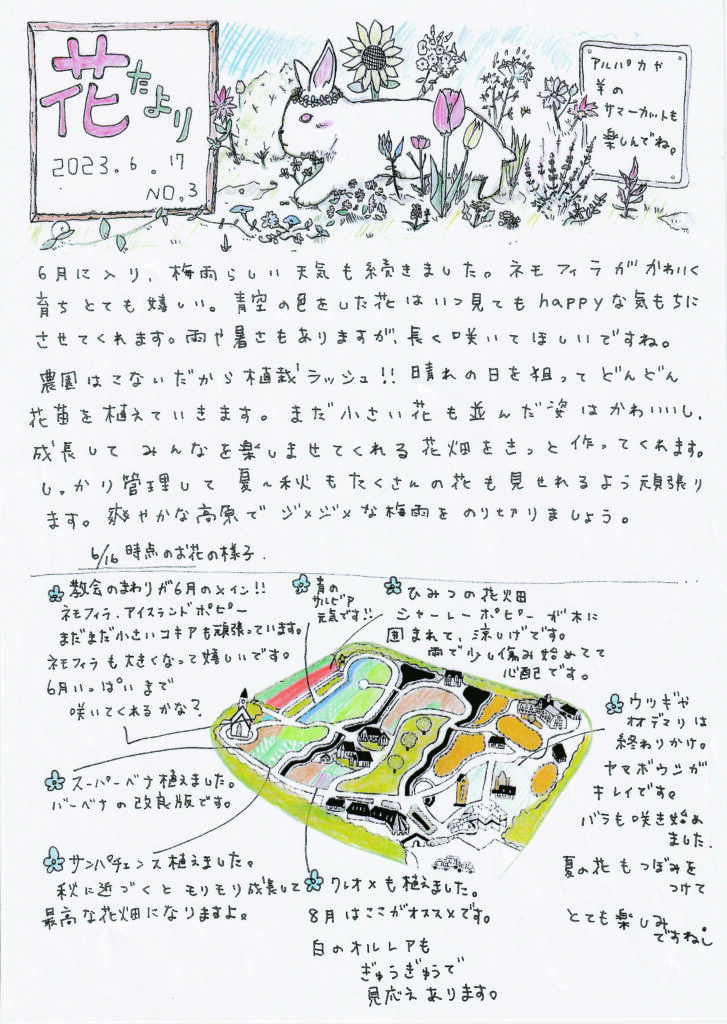 花だより
2023.6.17
NO.3
アルパカや
羊の
サマーカットも
楽しんでね。
6月に入り、梅雨らしい天気も続きました。ネモフィラがかわいく
育ちとても嬉しい。青空の色をした花はいつ見てもhappyな気もちに
させてくれます。雨や暑さもありますが、長く咲いてほしいですね。
農園はこないだから植栽ラッシュ!!晴れの日を狙ってどんどん
花苗を植えていきます。まだ小さい花も並んだ姿はかわいいし、
成長してみんなを楽しませてくれる花畑をきっと作ってくれます。
しっかり管理して夏~秋もたくさんの花も見せれるよう頑張り
ます。爽やかな高原でジメジメな梅雨をのり切りましょう。
6/16時点のお花の様子.
教会のまわりが6月のメイン!!
ネモフィラ、アイスランドポピー
まだまだ小さいコキアも頑張っています。
ネモフィラも大きくなって嬉しいです。
6月いっぱいまで
咲いてくれるかな?
青の
サルビア
元気です!!
ひみつの花畑
シャーレーポピーが木に
囲まれて、涼しげです。
雨で少し傷み始めてて
心配です。
ウツギや
オオデマリは
終わりかけ。
ヤマボウシが
キレイです。
バラも咲き始め
ました.
夏の花もつぼみを
つけて
とても楽しみ
ですね。
スーパーベナ植えました。
バーベナの改良版です。
サンパチェンス植えました。
秋に近づくとモリモリ成長して
最高な花畑になりますよ。
クレオメも植えました。
8月はここがオススメです。
白のオルレアも
ぎゅうぎゅうで
見応えあります。